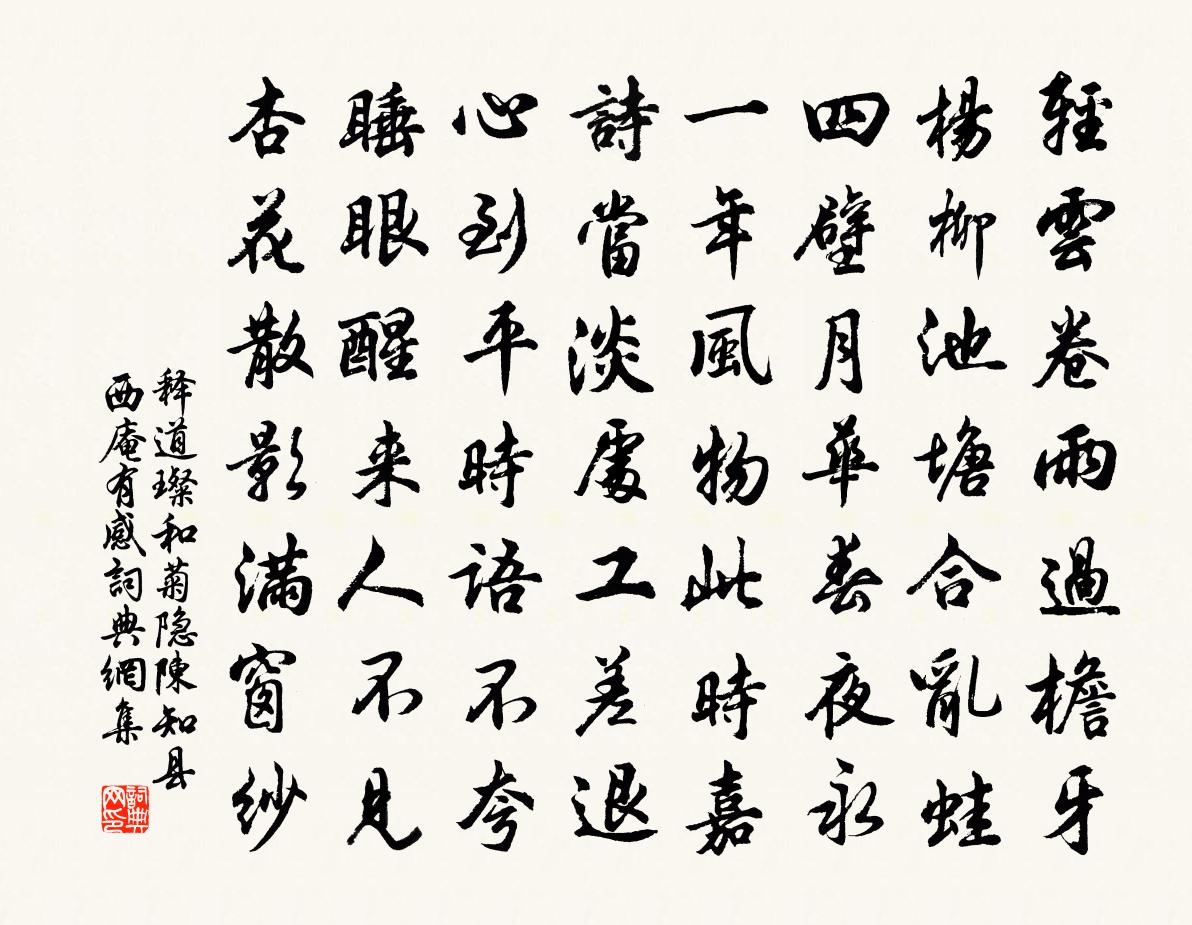 輕雲卷雨過檐牙
楊柳池塘合亂蛙
四壁月華春夜永
一年風物此時嘉
詩當淡處工差退
心到平時語不夸
睡眼醒来人不見
杏花散影滿窗紗
释道璨和菊隐陳知县
西庵有感詞典網集
詞典
网印